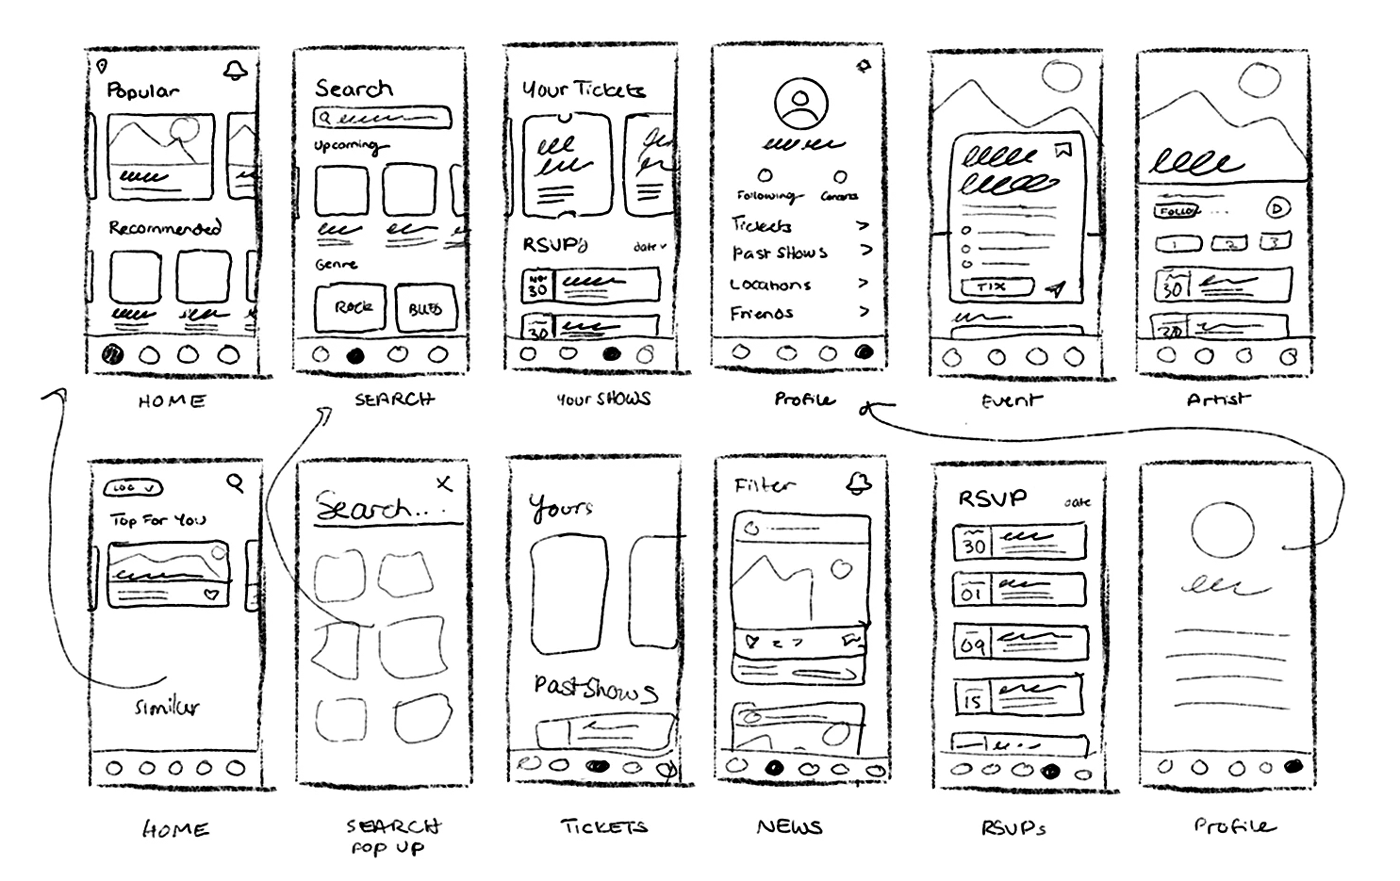 Popular
Recommended
HOME
Search
Upcoming
Genre
ROCK
BLUES
SEARCH
Your Tickets
RSVP's
date
NOV
30
30
Your SHOWS
Following
Tickets
Past Shows
Locations
Friends
Profile
TIX
Event
FOLLOW
1 2 3
30
Artist
LOC
Top For You
Similar
HOME
Search...
SEARCH
POP UP
Yours
Past Shows
TICKETS
Filter
NEWS
RSVP
date
30
01
09
15
RSVPs
Profile